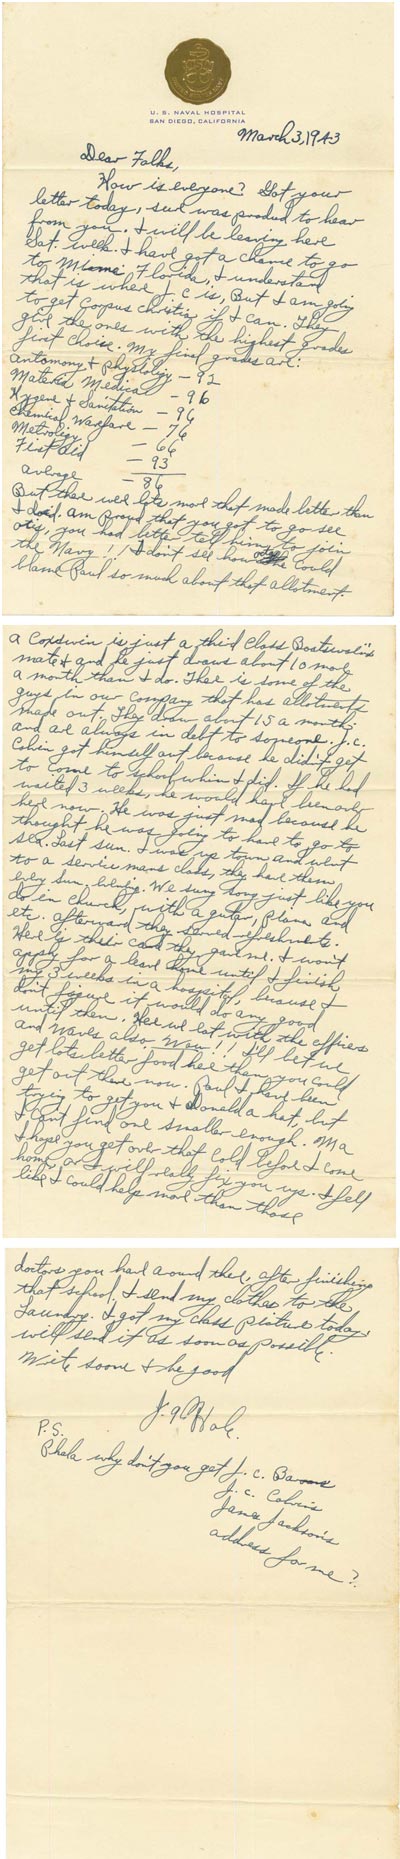 U. S. NAVAL HOSPITAL
SAN DIEGO, CALIFORNIA
March 3, 1943
Dear Folks,
How is everyone? Got your
letter today, sure was proud to hear
from you. I will be leaving here
Sat. week. I have got a chance to go
to Miami Florida, I understand
that is where J.C is, But I am going
to get Corpus Christi if I can. They
give the ones with the highest grades
first choice. My final grades are:
Antomony & physiology - 92
Materia Medica - 96
Hygene & Sanitation - 96
Chemical Warefare - 76
Metrology - 66
First Aid - 93
average - 86
But there were lots more that made better than
I did. am proud that you got to go see
Otis, you had better tell him to join
the Navy!! I don't see how he could
blame Paul so much about that allotment.
a Coxswin is just a third Class Boatswain's
mate & and he just draws about 10 more
a month than I do. There is some of the
guys in our company that has allotments
made out. They draw about 15 a month
and are always in debt to someone. J.C.
Colvin got himself out because he didn't get
to come to school when I did. If he had
waited 3 weeks, he would have been over
here now. He was just mad because he
thought he was going to have to go to
sea. Last sun. I was up town and went
to a service mans class, they have them
every Sun, evening. We sung song just like you
do in church, with a guitar, piano and
etc. afterward they served refreshments.
Here is their card they gave me. I won't
apply for a leave home until I finish
my 3 weeks in a hospital, because I
don't figure it would do any good
until then. Here we eat with the officers
and Waves also. Wow!! I'll bet we
get lots better food here than you could
get out there now. Paul I have been
trying to get you & Donald a hat, but
I can't find one smaller enough. Ma
I hope you get over that cold before I come
home, or I will really fix you up. I fell
like I could help more than those
doctors you have around there, after finishing
that school. I send my clothes to the
Laundry. I got my class picture today,
will send it as soon as possible.
Write soone & be good
J. Hale.
P.S.
Phala why don't you get J. C.
J. C. Colvin's
James Jackson's
address for me?